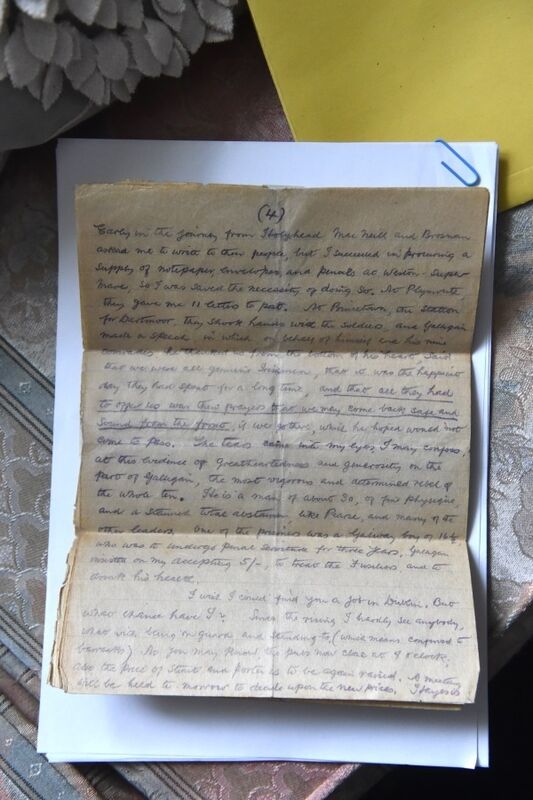 (4)
Early in the journey from Holyhead MacNeill and Brosnan
asked me to write to their people, but I succeeded in procuring a
supply of notepaper, envelopes and pencils at Weston-Super-
Mare, so I was saved the necessity of doing so. At Plymouth
they gave me 11 letters to post. At Princetown, the station
for Dartmoor, they shook hands with the soldiers, and Galligan
made a speech in which on behalf of himself and his nine
comrades he thanked us from the bottom of his heart, said
that we were all genuine Irishmen, that it was the happiest
day they had spent for a long time, and that all they had
to offer us was their prayers that we may come back safe and
sound from the front, if we go there, which he hoped would not
come to pass. The tears came into my eyes, I may confess,
at this evidence of greatheartedness and generosity on the
part of Galligan, the most vigorous and determined rebel of
the whole ten. He is a man of about 30, of fine physique,
and a staunch total abstainer like Pearse, and many of the
other leaders. One of the prisoners was a Galway boy of 16½
who was to undergo Penal Servitude for three years. Galligan
insisted on my accepting 5/-, to treat the Fusiliers, and to
drink his health.
I wish I could find you a job in Dublin. But
what chance have I? Since the rising I hardly see anybody,
what with being on guard and standing to, (which means confined to
barracks). As you may know the pubs now close at 9 o'clock,
also the price of stout and porter is to be again raised. A meeting
will be held to-morrow to decide upon the new prices.